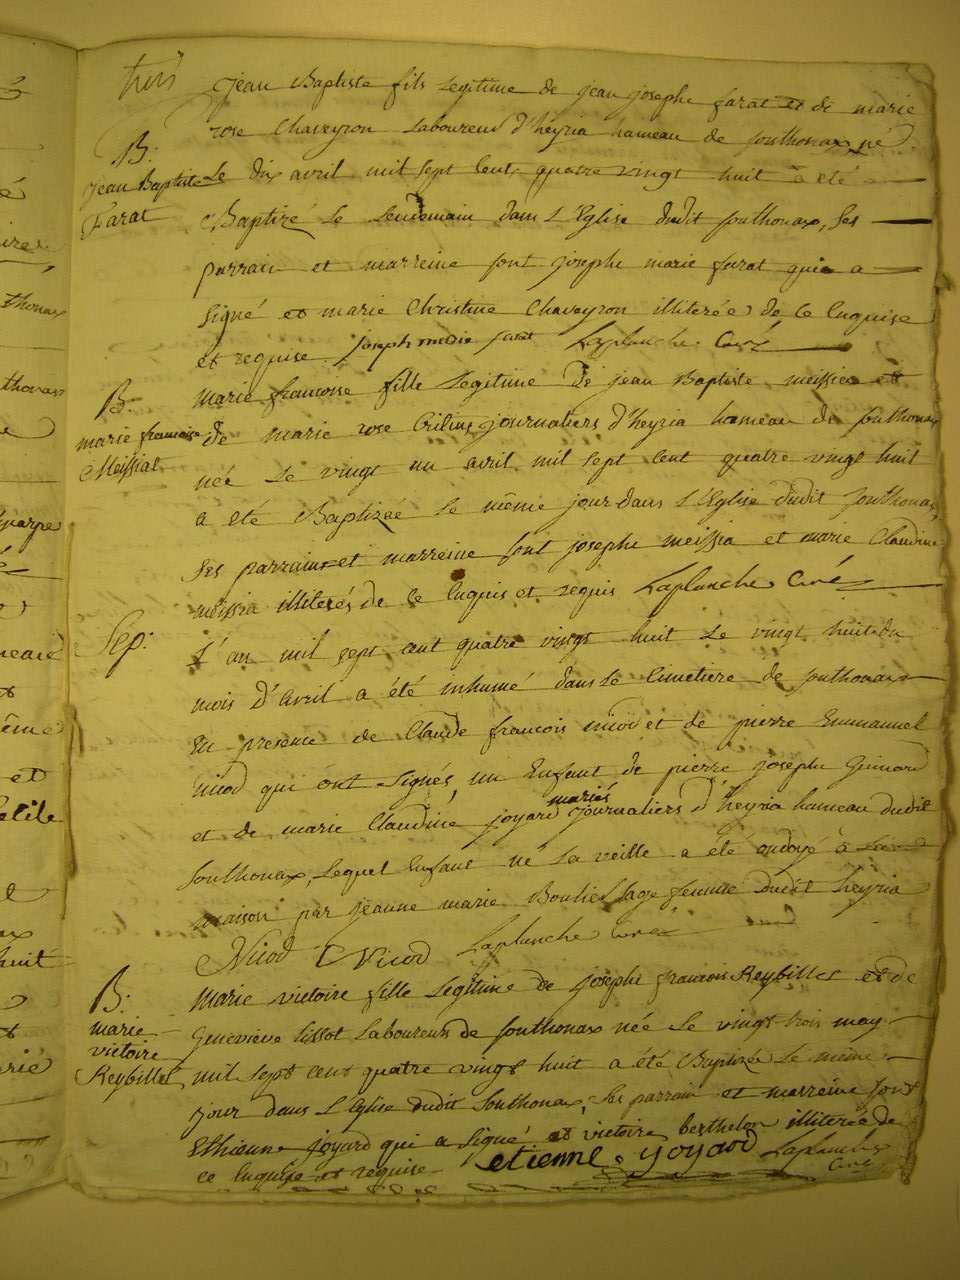 trois
B:
jean Baptiste
Farat
jean Baptiste fils Legitime de jean josephe farat et de marie
rose Chaveyron Laboureurs d'heyria hameau de Southonax né
Le dix avril mil sept cent quatre vingt huit a été
Baptizé Le Lendemain dans L'Eglise dudit Southonax, Ses
parrain et marreine sont josephe marie farat qui a
signé et marie Christine Chaveyron illiterée de ce Enquise
et requise. joseph marie farat Laplanche Curé
B:
marie francoise
Meissiat
marie francoise fille Legitime de jean Baptiste meissia et
de marie rose journaliers d'heyria hameau de Southonax
née Le vingt un avril mil sept cent quatre vingt huit
a été Baptizée Le même jour dans L'Eglise dudit Southonax,
Ses parrain et marreine sont josephe meissia et marie Claudine
meissia illiterés de ce Enquis et requis Laplanche Curé
Sep:
L'an mil sept cent quatre vingt huit Le vingt huit du
mois d'avril a été inhumé dans Le Cimetiere de Southonax
En presence de Claude francois nicod et de pierre Emmanuel
nicod qui ont signés, un Enfant de pierre josephe
et de marie Claudine joyard mariés journaliers d'heyria hameau dudit
Southonax, Lequel Enfant né La veille a été ondoyé à La
maison par jeanne marie Sage femme dudit heyria
Nicod Nicod Laplanche Curé
B:
marie
victoire
Reybillet
Marie victoire fille Legitime de josephe francois Reybillet et de
Genevieve Tissot Laboureurs de Southonax née Le vingt trois may
mil Sept cent quatre vingt huit a été Baptizée Le même
jour dans L'Eglise dudit Southonax, Ses parrain et marreine sont
Ethienne joyard qui a signé et victoire berthelon illiterée de
ce Enquise et requise etienne joyard Laplanche
Curé